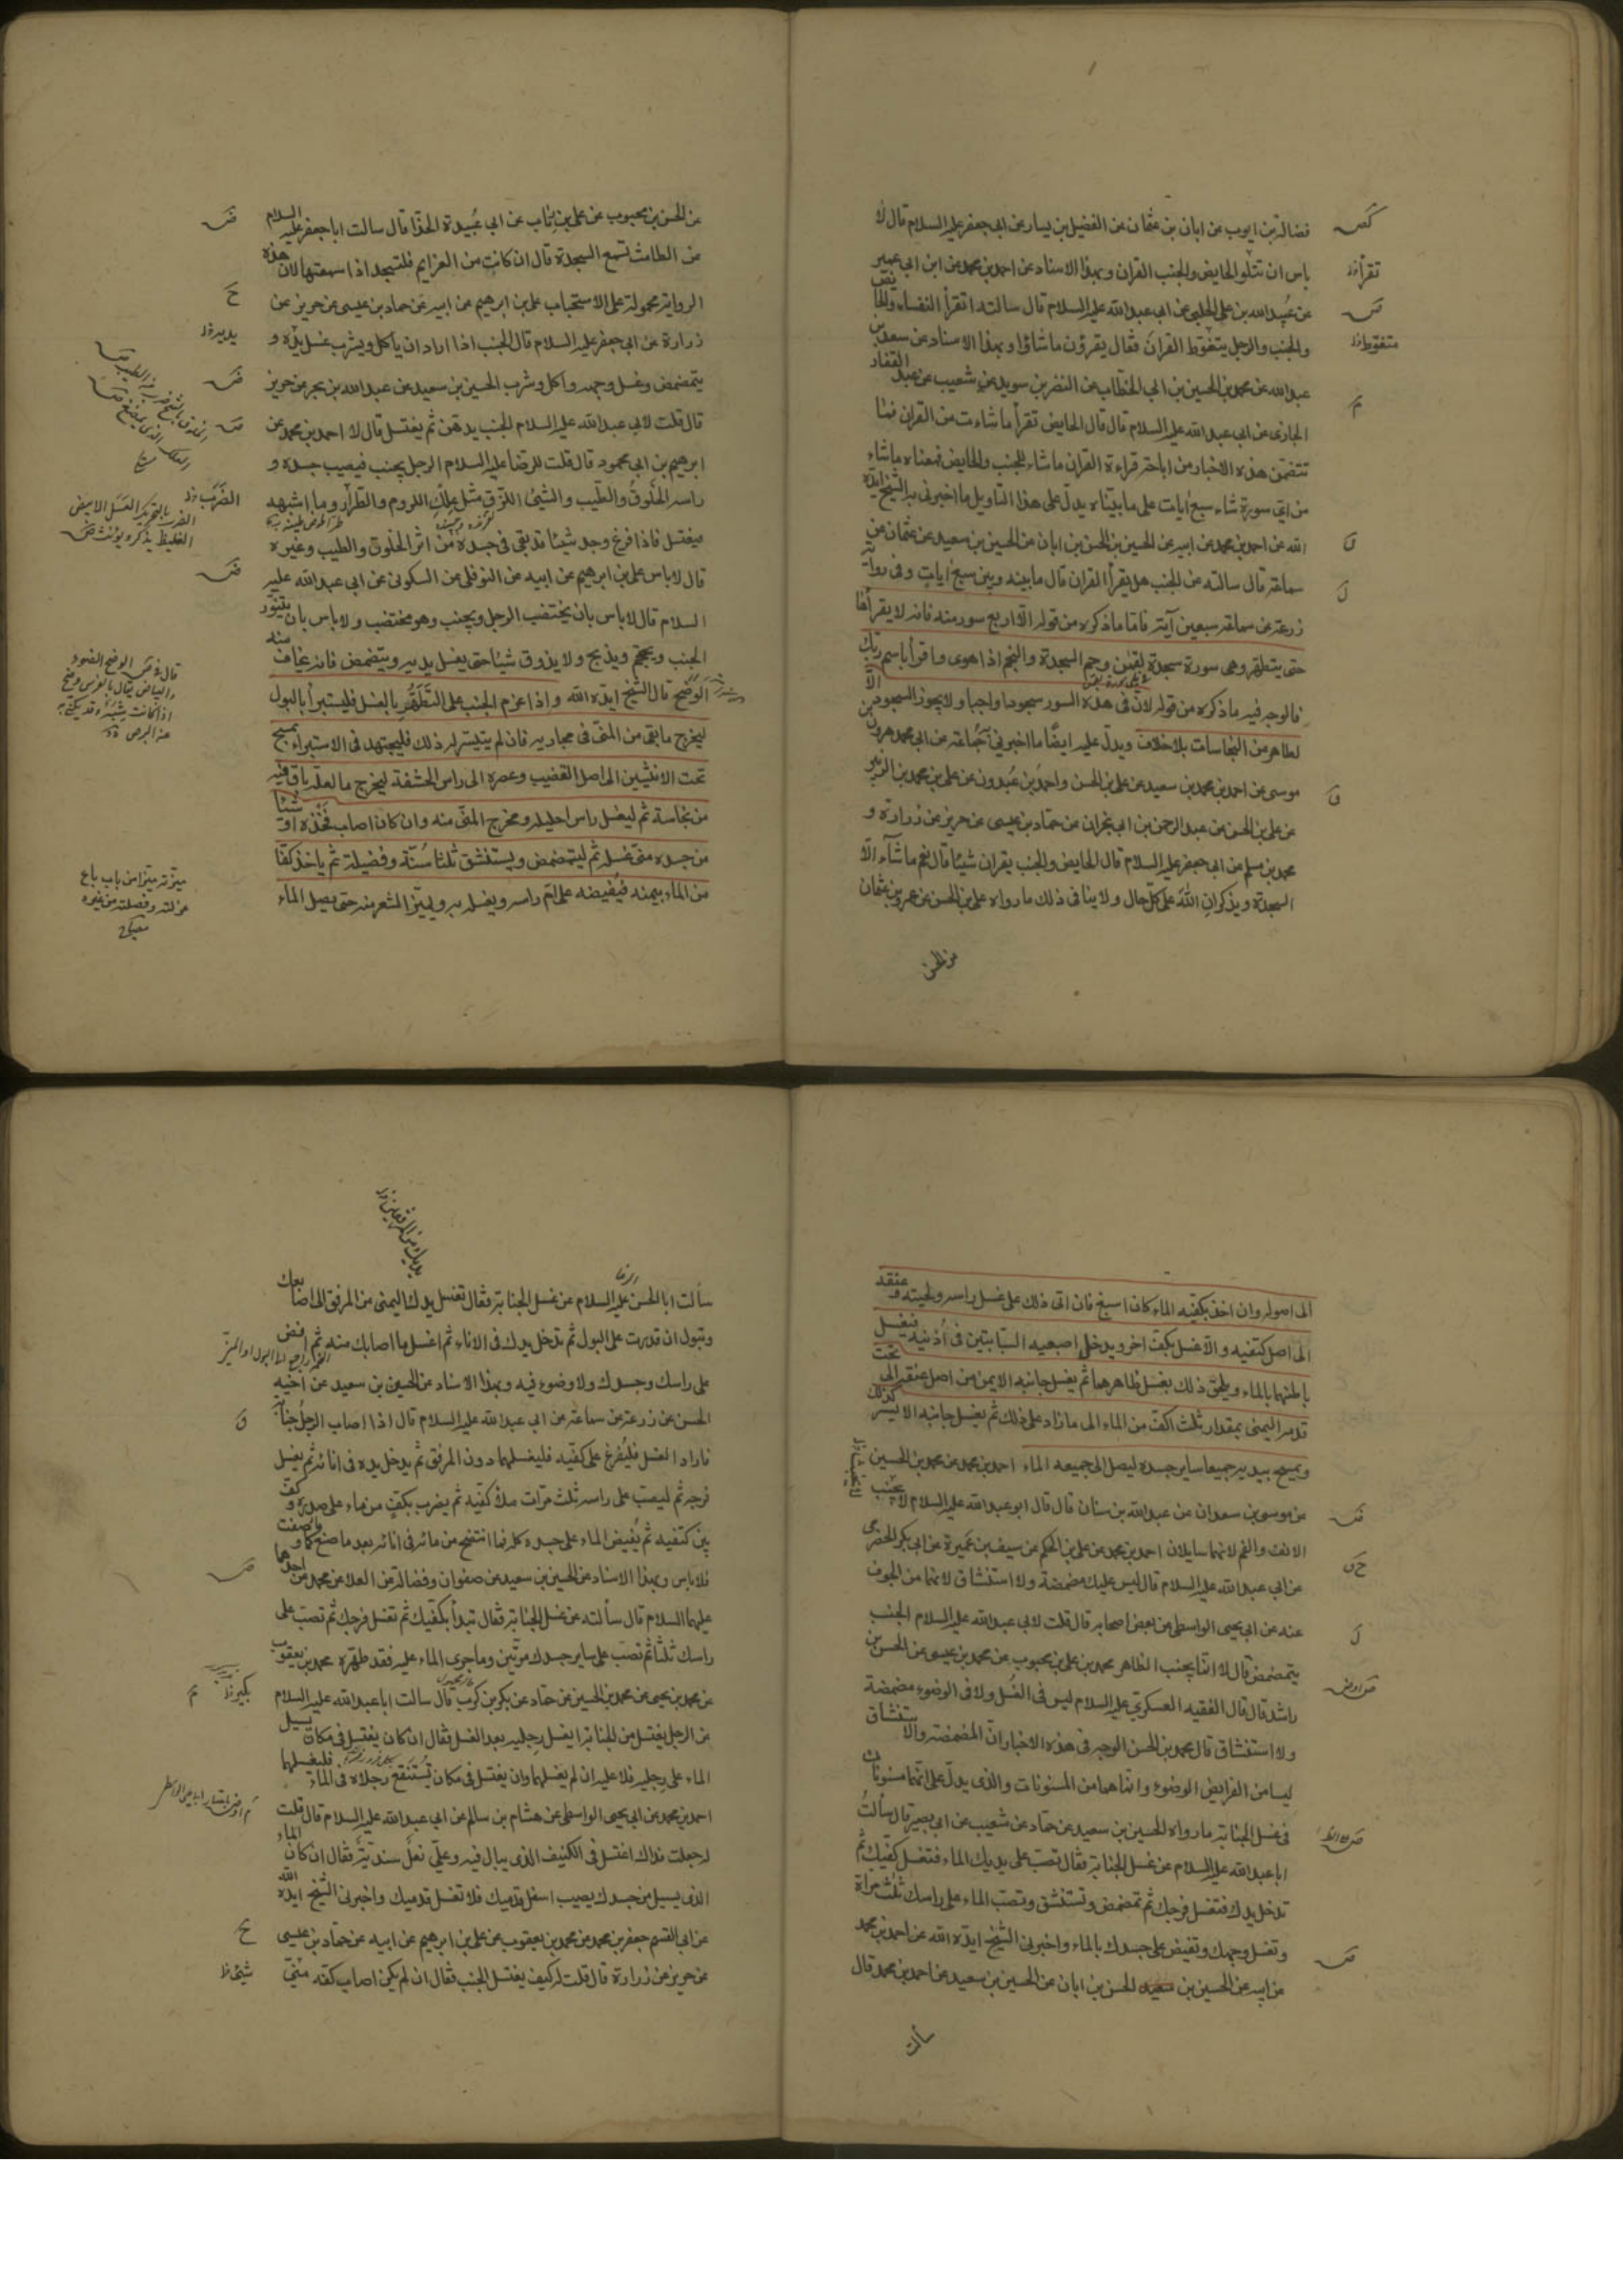 فضالة بن ايوب عن ابان بن عثمان عن الفضيل بن يسار عن ابى جعفر عليه السلام قال لا
باس ان تتلو الحايض والجنب القران وبهذا الاسناد عن احمد بن محمد عن ابن ابى عمير
عن عبيد الله بن على الحلبى عن ابى عبد الله عليه السلام قال سالته اتقرأ النفساء والحايض
والجنب والرجل يتغوط القران فقال يقرؤن ما شاؤا وبهذا الاسناد عن سعد بن
عبد الله عن محمد بن الحسين بن ابى الخطاب عن النضر بن سويد عن شعيب عن عبد الغفار
الجازى عن ابى عبد الله عليه السلام قال قال الحايض تقرأ ما شاءت من القران فما
تتضمن هذه الاخبار من اباحة قراءة القران ما شاء للجنب والحايض فمعناه ما شاء
من اى سورة شاء سبع ايات على ما بيناه يدل على هذا التاويل ما اخبرنى به الشيخ ايده
الله عن احمد بن محمد عن ابيه عن الحسين بن الحسن بن ابان عن الحسين بن سعيد عن عثمان عن
سماعة قال سالته عن الجنب هل يقرأ القران قال ما بينه وبين سبع ايات وفى رواية
زرعة عن سماعة سبعين آية فاما ما ذكره من قوله الا اربع سور منه فانه لا يقرأها
حتى يتطهر وهى سورة سجدة لقمن وحم السجدة والنجم اذا هوى واقرأ باسم ربك
فالوجه فيه ما ذكره من قوله لان فى هذه السور سجودا واجبا ولا يجوز السجود الا
لطاهر من النجاسات بلا خلاف ويدل عليه ايضا ما اخبرنى جماعة عن ابى محمد هرون بن
موسى عن احمد بن محمد بن سعيد عن على بن الحسن واحمد بن عبدون عن على بن محمد بن الزبير
عن على بن الحسن عن عبد الرحمن بن ابى نجران عن حماد بن عيسى عن حريز عن زرارة و
محمد بن مسلم عن ابى جعفر عليه السلام قال الحايض والجنب يقران شيئا قال نعم ما شاء الا
السجدة ويذكران الله على كل حال ولا ينافى ذلك ما رواه على بن الحسن عن عمرو بن عثمان
عن الحسن
تقرأ خ
متغوط خ
عن الحسن بن محبوب عن على بن رئاب عن ابى عبيدة الحذا قال سالت ابا جعفر عليه السلام
عن الطامث تسمع السجدة قال ان كانت من العزايم فلتسجد اذا سمعتها لان هذه
الرواية محمولة على الاستحباب على بن ابرهيم عن ابيه عن حماد بن عيسى عن حريز عن
زرارة عن ابى جعفر عليه السلام قال الجنب اذا اراد ان ياكل ويشرب غسل يده و
يتمضمض وغسل وجهه واكل وشرب الحسين بن سعيد عن عبد الله بن بحر عن حريز
قال قلت لابى عبد الله عليه السلام الجنب يدهن ثم يغتسل قال لا احمد بن محمد عن
ابرهيم بن ابى محمود قال قلت للرضا عليه السلام الرجل يجنب فيصيب جسده و
راسه الخلوق والطيب والشئ اللزق مثل علك الروم والطرار وما اشبهه
فيغتسل فاذا فرغ وجد شيئا قد بقى فى جسده من اثر الخلوق والطيب وغيره
قال لا باس على بن ابرهيم عن ابيه عن النوفلى عن السكونى عن ابى عبد الله عليه
السلام قال لا باس بان يختضب الرجل ويجنب وهو مختضب ولا باس بان يتنور
الجنب ويحتجم ويذبح ولا يذوق شيئا حتى يغسل يديه ويتمضمض فانه يخاف منه
الوضح قال الشيخ ايده الله واذا عزم الجنب على التطهر بالغسل فليستبرأ بالبول
ليخرج ما بقى من المنى فى مجاريه فان لم يتيسر له ذلك فليجتهد فى الاستبراء يمسح
تحت الانثيين الى اصل القضيب وعصره الى راس الحشفة ليخرج ما لعله باق فيه
من نجاسة ثم ليغسل راس احليله ومخرج المنى منه وان كان اصاب فخذه او شيئا
من جسده منى غسله ثم ليتمضمض ويستنشق ثلثا سنة وفضيلة ثم ياخذ كفا
من الماء بيمينه فيفيضه على ام راسه ويغسله به ويميز الشعر منه حتى يصل الماء
يديه خ
الضرب بالتحريك العسل الابيض
الغليظ يذكر ويؤنث
الوضح الضوء
والبياض يقال بالفرس وضح
اذا كانت به شية وقد يكنى به
عن البرص
ميزته ميزا من باب باع
عزلته وفصلته من غيره
الى اصوله وان اخذ بكفيه الماء كان اسبغ فان اتى ذلك على غسل راسه ولحيته وعنقه
الى اصل كتفيه والا غسل بكف اخر ويدخل اصبعيه السبابتين فى اذنيه فيغسل
باطنهما بالماء ويلحق ذلك بغسل ظاهرهما ثم يغسل جانبه الايمن من اصل عنقه الى تحت
قدمه اليمنى بمقدار ثلث اكف من الماء الى ما زاد على ذلك ثم يغسل جانبه الايسر كذلك
ويمسح بيديه جميعا ساير جسده ليصل الى جميعه الماء احمد بن محمد عن محمد بن الحسين
عن موسى بن سعدان عن عبد الله بن سنان قال قال ابو عبد الله عليه السلام لا يجنب
الانف والفم لانهما سايلان احمد بن محمد عن على بن الحكم عن سيف بن عميرة عن ابى بكر الحضرمى
عن ابى عبد الله عليه السلام قال ليس عليك مضمضة ولا استنشاق لانهما من الجوف
عنه عن ابى يحيى الواسطى عن بعض اصحابه قال قلت لابى عبد الله عليه السلام الجنب
يتمضمض قال لا انما يجنب الظاهر محمد بن على بن محبوب عن محمد بن عيسى عن الحسن بن
راشد قال قال الفقيه العسكرى عليه السلام ليس فى الغسل ولا فى الوضوء مضمضة
ولا استنشاق قال محمد بن الحسن الوجه فى هذه الاخبار ان المضمضة والاستنشاق
ليسا من الفرايض الوضوء وانما هما من المسنونات والذى يدل على انهما مسنونان
فى غسل الجنابة ما رواه الحسين بن سعيد عن حماد عن شعيب عن ابى بصير قال سألت
ابا عبد الله عليه السلام عن غسل الجنابة فقال تصب على يديك الماء فتغسل كفيك ثم
تدخل يدك فتغسل فرجك ثم تمضمض وتستنشق وتصب الماء على راسك ثلث مراة
وتغسل وجهك وتفيض على جسدك بالماء واخبرنى الشيخ ايده الله عن احمد بن محمد
عن ابيه عن الحسين بن سعيد الحسن بن ابان عن الحسين بن سعيد عن احمد بن محمد قال
سألت
يديك من المرفقين
سألت ابا الحسن عليه السلام عن غسل الجنابة فقال تغسل يدك اليمنى من المرفق الى اصابعك
وتبول ان قدرت على البول ثم تدخل يدك فى الاناء ثم اغسل ما اصابك منه ثم افض
على راسك وجسدك ولا وضوء فيه وبهذا الاسناد عن الحسين بن سعيد عن اخيه
الحسن عن زرعة عن سماعة عن ابى عبد الله عليه السلام قال اذا اصاب الرجل جنابة
فاراد الغسل فليفرغ على كفيه فليغسلهما دون المرفق ثم يدخل يده فى انائه ثم يغسل
فرجه ثم ليصب على راسه ثلث مرات ملأ كفيه ثم يضرب بكف من ماء على صدره وكف
بين كتفيه ثم يفيض الماء على جسده كله فما انتضح من مائه فى انائه بعد ما صنع ما وصفت
فلا باس وبهذا الاسناد عن الحسين بن سعيد عن صفوان وفضالة عن العلا عن محمد عن احدهما
عليهما السلام قال سألته عن غسل الجنابة فقال تبدأ بكفيك ثم تغسل فرجك ثم تصب على
راسك ثلثا ثم تصب على ساير جسدك مرتين وما جرى الماء عليه فقد طهره محمد بن يعقوب
عن محمد بن يحيى عن محمد بن الحسين عن حماد عن بكر بن كرب قال سالت ابا عبد الله عليه السلام
عن الرجل يغتسل من الجنابة ايغسل رجليه بعد الغسل فقال ان كان يغتسل فى مكان يسيل
الماء على رجليه فلا عليه ان لم يغسلهما وان يغتسل فى مكان تستنقع رجلاه فى الماء فليغسلهما
احمد بن محمد عن ابى يحيى الواسطى عن هشام بن سالم عن ابى عبد الله عليه السلام قال قلت
له جعلت فداك اغتسل فى الكنيف الذى يبال فيه وعلى نعل سندية فقال ان كان الماء
الذى يسيل من جسدك يصيب اسفل قدميك فلا تغسل قدميك واخبرنى الشيخ ايده الله
عن ابى القسم جعفر بن محمد عن محمد بن يعقوب عن على بن ابرهيم عن ابيه عن حماد بن عيسى
عن حريز عن زرارة قال قلت له كيف يغتسل الجنب فقال ان لم يكن اصاب كفه منى
بكير خ
شئ خ